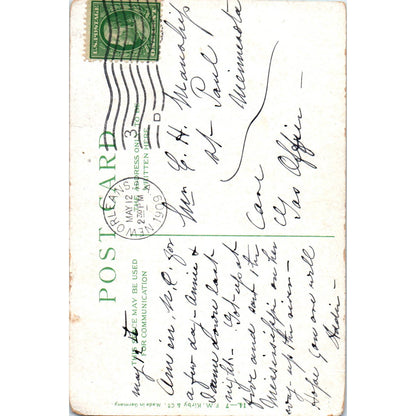 U.S. POSTAGE
NEW ORLEANS
MAY 12
2 30 PM
1909
D
3
POST CARD
THIS SPACE MAY BE USED
FOR COMMUNICATION
THE ADDRESS ONLY TO BE
WRITTEN HERE
Am in N.O. for
a few days - Annie &
I came down last
night. - Got
Mississippi on her
way up the river -
Hope you are well
Mr. C. H. Manship
St Paul
Minnesota
Care
Gas Office -
14 - 7 F. M. Kirby & Co. Made in Germany